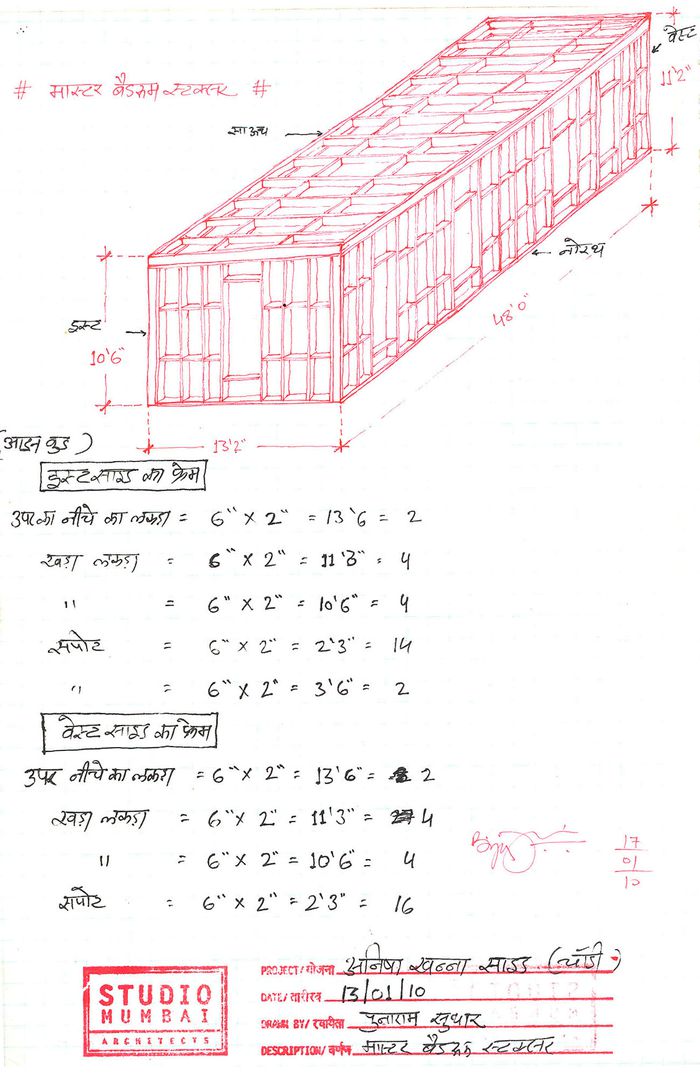 # मास्टर बैडरूम स्टक्चर #
वेस्ट
11'2"
साउथ
नोरथ
48'0"
इस्ट
10'6"
13'2"
(आइन वुड)
इस्ट साइड का फ्रेम
उपर का नीचे का लकड़ा = 6" X 2" = 13'6 = 2
खड़ा लकड़ा = 6" X 2" = 11'3" = 4
" = 6" X 2" = 10'6" = 4
सपोट = 6" X 2" = 2'3" = 14
" = 6" X 2" = 3'6" = 2
वेस्ट साइड का फ्रेम
उपर नीचे का लकड़ा = 6" X 2" = 13'6" = 2
खड़ा लकड़ा = 6" X 2" = 11'3" = 4
" = 6" X 2" = 10'6" = 4
सपोट = 6" X 2" = 2'3" = 16
17
01
10
STUDIO
MUMBAI
ARCHITECTS
PROJECT/योजना अनिषा खन्ना साइड (चोंडी)
DATE/तारीख 13/01/10
DRAWN BY/रचयिता पुनाराम सुथार
DESCRIPTION/वर्णन मास्टर बैडरूम स्टक्चर